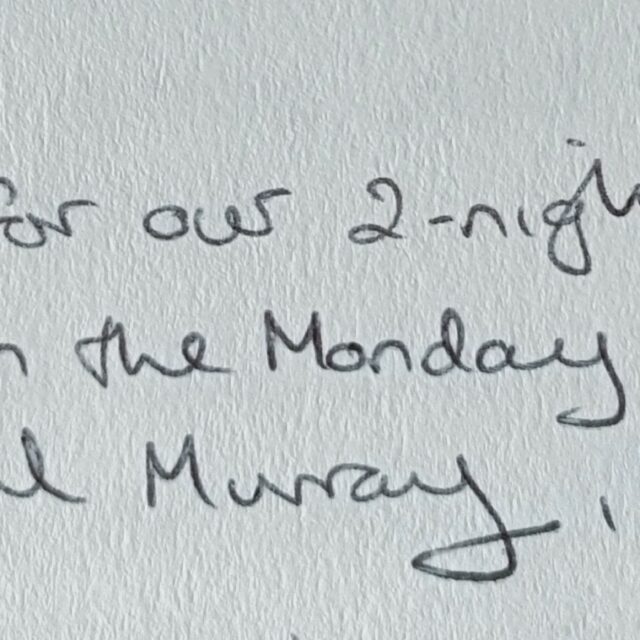 for our 2-nigh
the Monday
Murray,